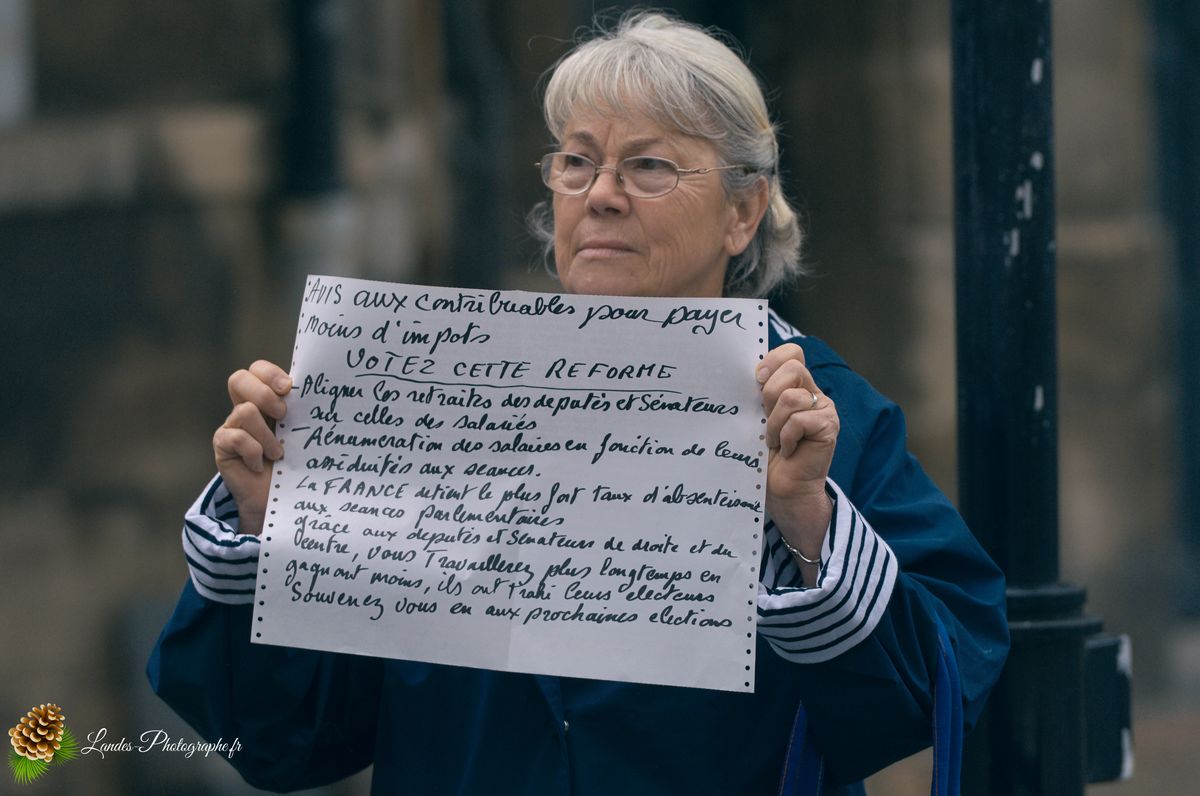 AVIS aux contribuables pour payer
moins d'impots
VOTEZ CETTE REFORME
- Aligner les retraites des deputés et Sénateurs
sur celles des salariés
- Rénumeration des salaires en fonction de leurs
assiduités aux seances.
La FRANCE detient le plus fort taux d'absenteisme
aux seances parlementaires
grâce aux deputés et Sénateurs de droite et du
centre, vous Travaillerez plus longtemps en
gagnant moins, ils ont trahi leurs electeurs
Souvenez vous en aux prochaines elections
Landes-Photographe.fr